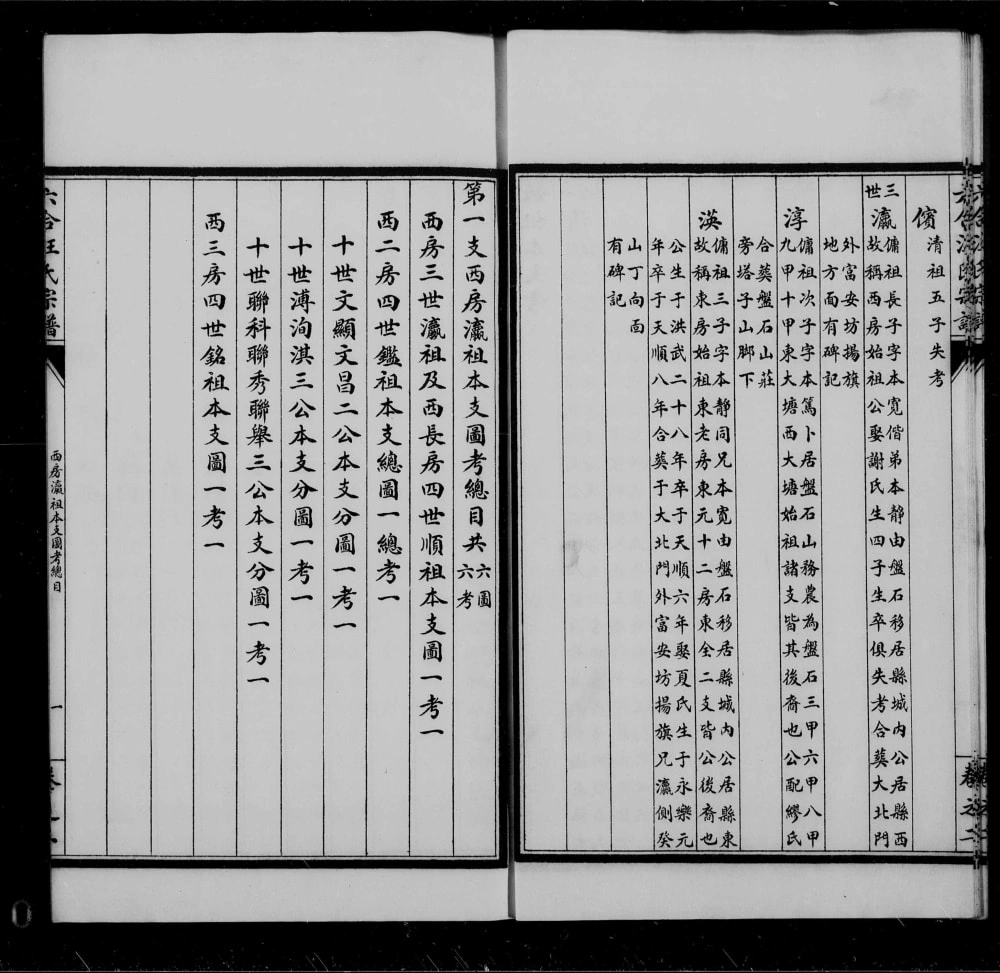 儐
清祖五子失考
三世
瀛
傭祖長子字本寬偕弟本靜由盤石移居縣城內公居縣西
故稱西房始祖公娶謝氏生四子生卒俱失考合葬大北門
外富安坊揚旗
地方面有碑記
淳
傭祖次子字本篤卜居盤石山務農為盤石三甲六甲八甲
九甲十甲東大塘西大塘始祖諸支皆其後裔也公配繆氏
合葬盤石山莊
旁塔子山脚下
渶
傭祖三子字本靜同兄本寬由盤石移居縣城內公居縣東
故稱東房始祖東老房東元十二房東全二支皆公後裔也
公生于洪武二十八年卒于天順六年娶夏氏生于永樂元
年卒于天順八年合葬于大北門外富安坊揚旗兄瀛側癸
山丁向面
有碑記
第一支西房瀛祖本支圖考總目共六圖六考
西房三世瀛祖及西長房四世順祖本支圖一考一
西二房四世鑑祖本支總圖一總考一
十世文顯文昌二公本支分圖一考一
十世溥洵淇三公本支分圖一考一
十世聯科聯秀聯舉三公本支分圖一考一
西三房四世銘祖本支圖一考一
六合汪氏宗譜
西房瀛祖本支圖考總目
一